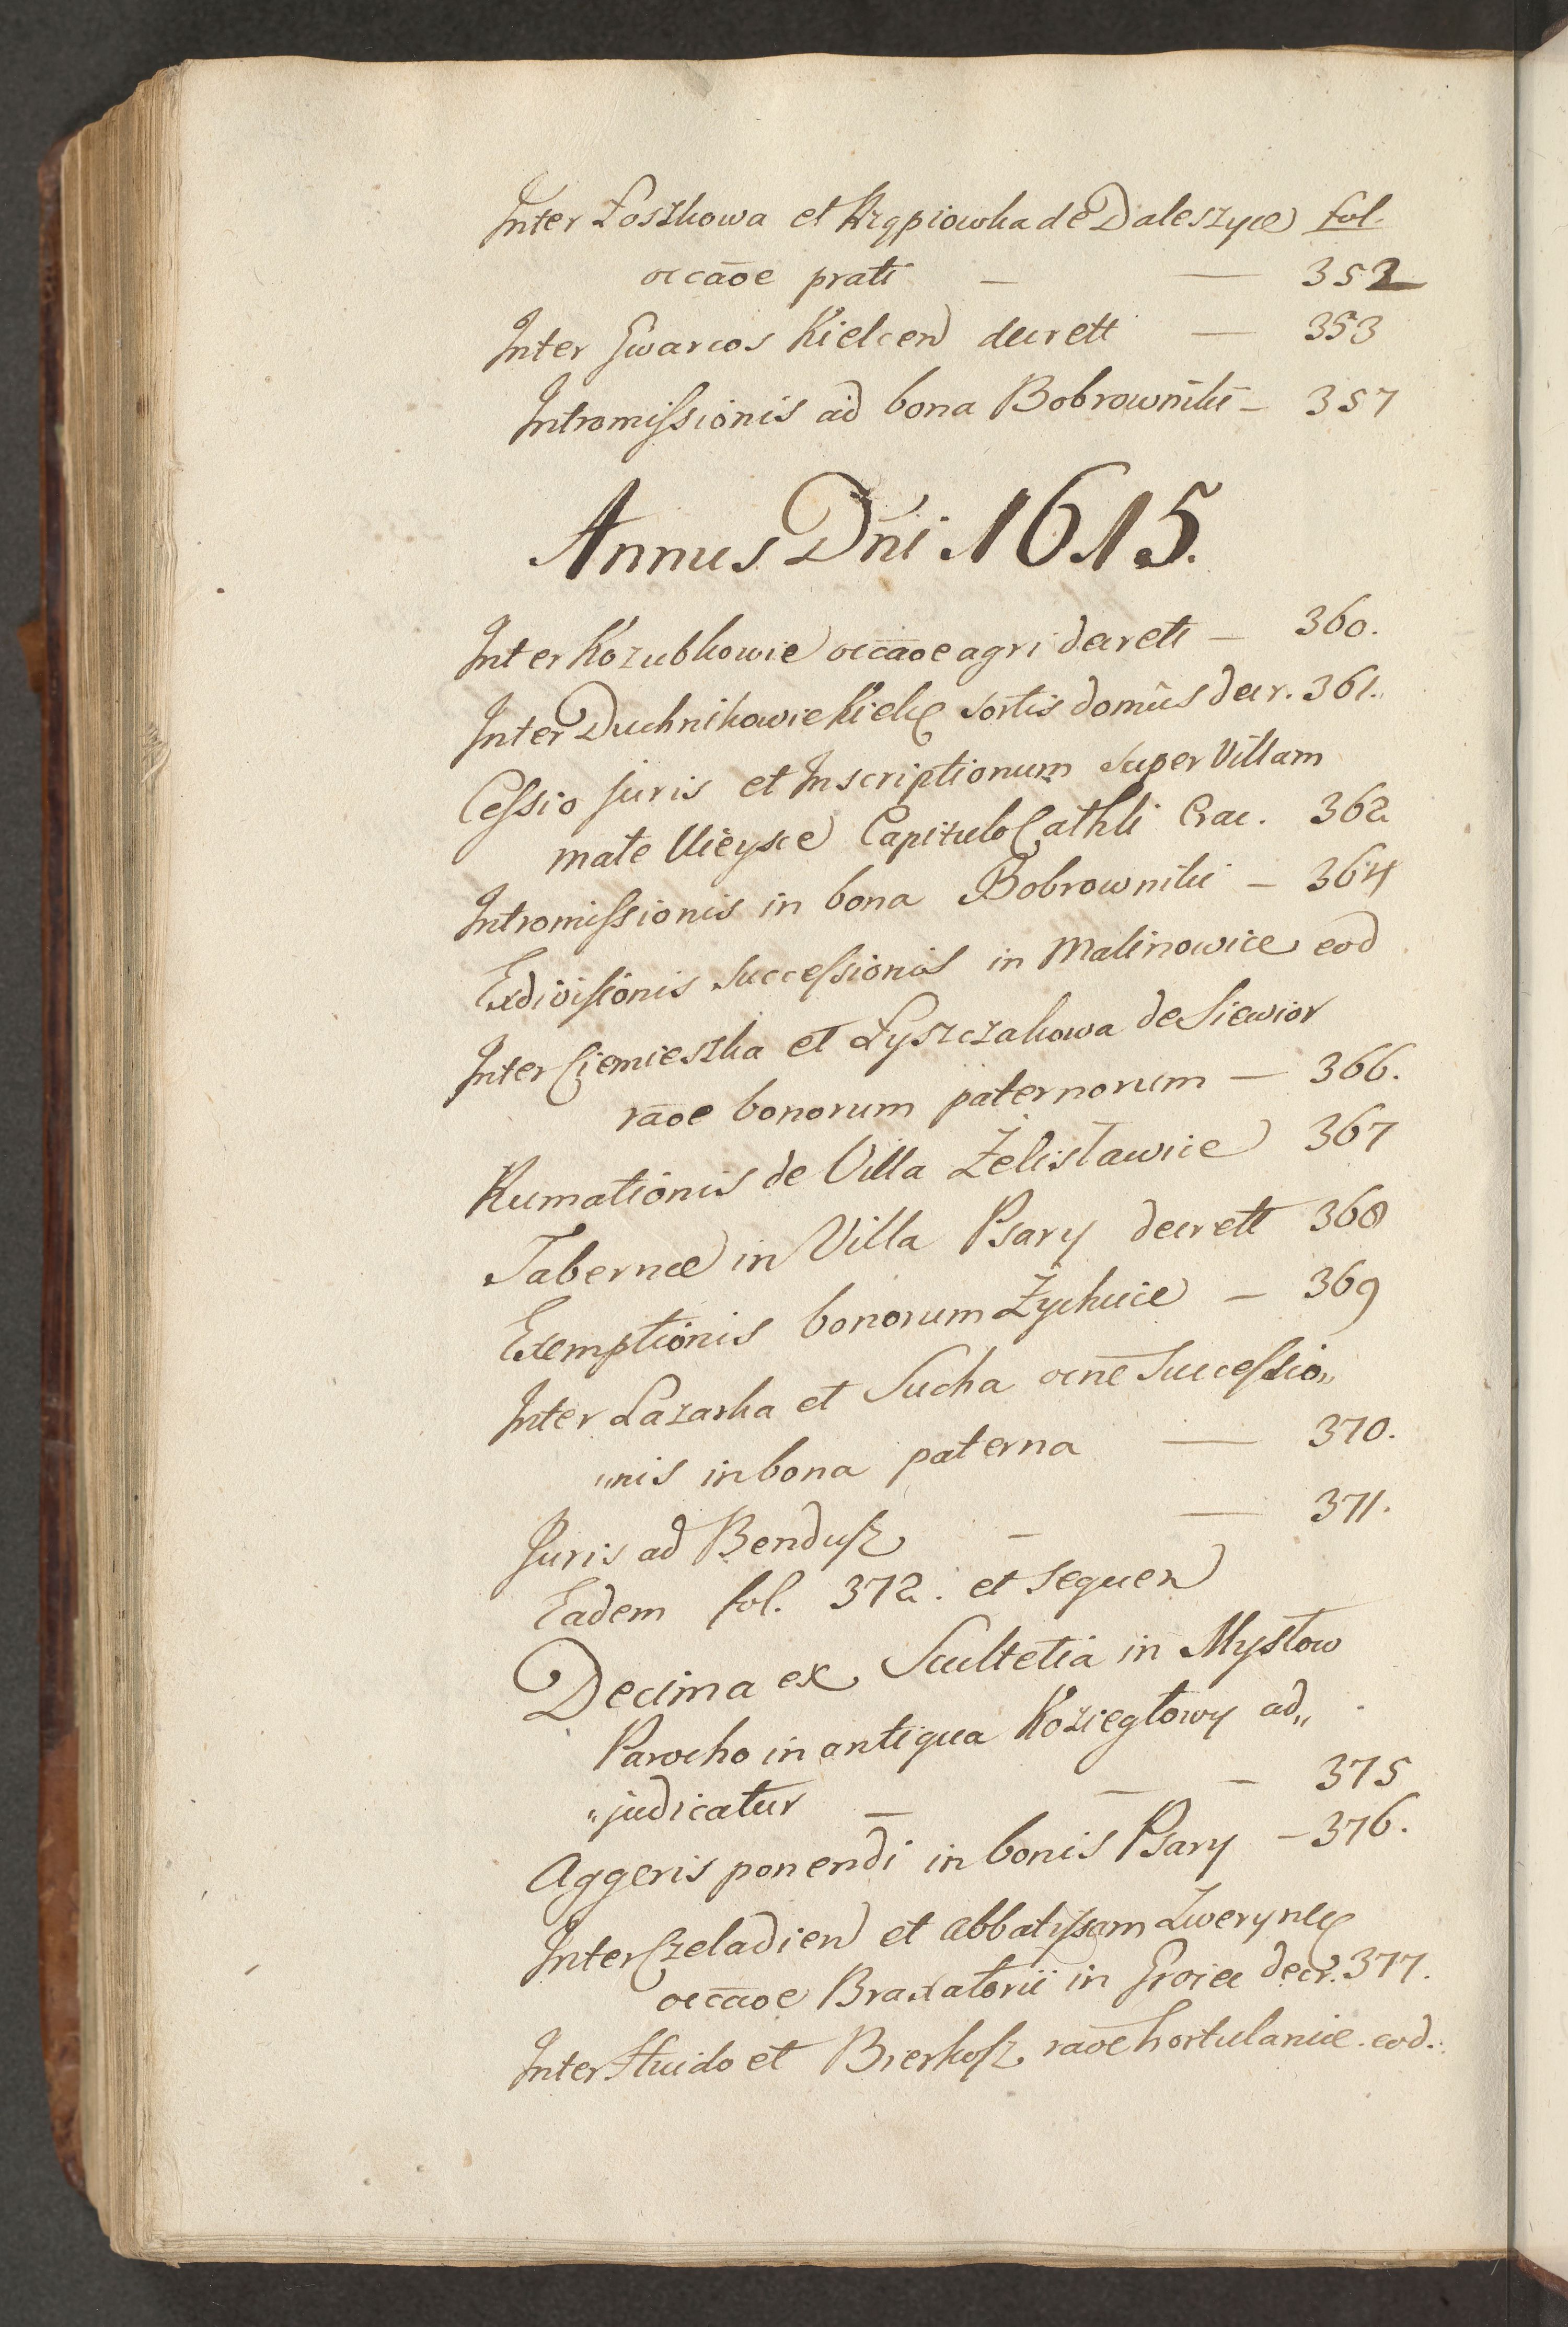 Inter Łoszkowa et Krząpiowka de Daleszyce fol.
occāoe prati — — 352
Inter Gwarcos Kielcen decrett — 353
Intromissionis ad bona Bobrowniki — 357
Annus Dni 1615.
Inter Kozubkowie occāoe agri decrett — 360.
Inter Duchnikowie Kielc sortis domûs decr. 361.
Cessio juris et Inscriptionum super Villam
mate Uieysce Capitulo Cathli Crac. 362
Intromissionis in bona Bobrowniki — 364
Exdivisionis successionis in Malinowice eod
Inter Ciemieszka et Łyszczakowa de Siewior
rāoe bonorum paternorum — 366.
Rumationis de Villa Żelisławice 367
Tabernæ in Villa Psary decrett 368
Exemptionis bonorum Żychcice — 369
Inter Lazarka et Sucha ocne successio„
„nis in bona paterna — 370.
Juris ad Bendusz — — 371.
Eadem fol. 372. et sequen
Decima ex Scultetia in Mysłow
Parocho in antiqua Koziegłowy ad„
„judicatur — — — 375
Aggeris ponendi in bonis Psary — 376.
Inter Czeladien et abbatissam Zwerynec
occāoe Braxatorii in Groiec decr. 377.
Inter Huido et Bierkosz raoe hortulaniæ. eod.